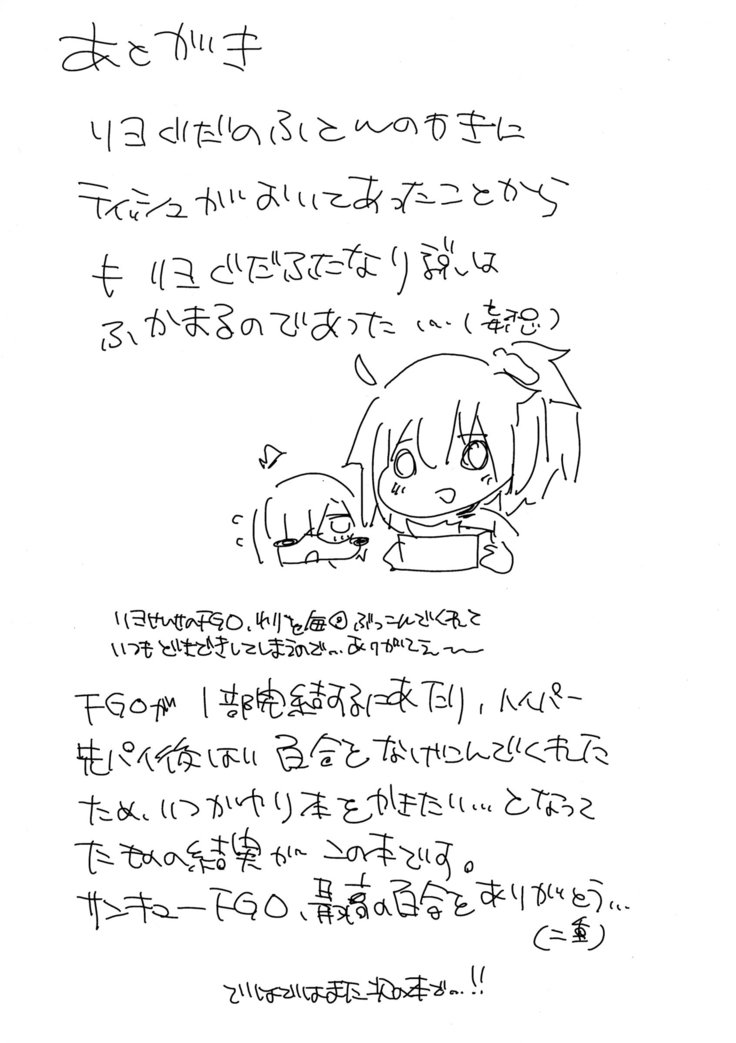 あとがき
リヨぐだのふとんのわきに
ティッシュがおいてあったことから
も リヨぐだふたなり説は
ふかまるのであった…(妄想)
リヨせんせのFGO、わりと毎回ぶっこんでくれて
いつもどきどきしてしまうので…ありがてえ〜〜
FGOが1部完結するにあたり、ハイパー
先パイ後はい百合をなげこんでくれた
ため、いつかやり本をかきたい…となって
たものの結実がこの本です。
サンキューFGO、最高の百合をありがとう…
(二重)
ではではまた次の本で…!!